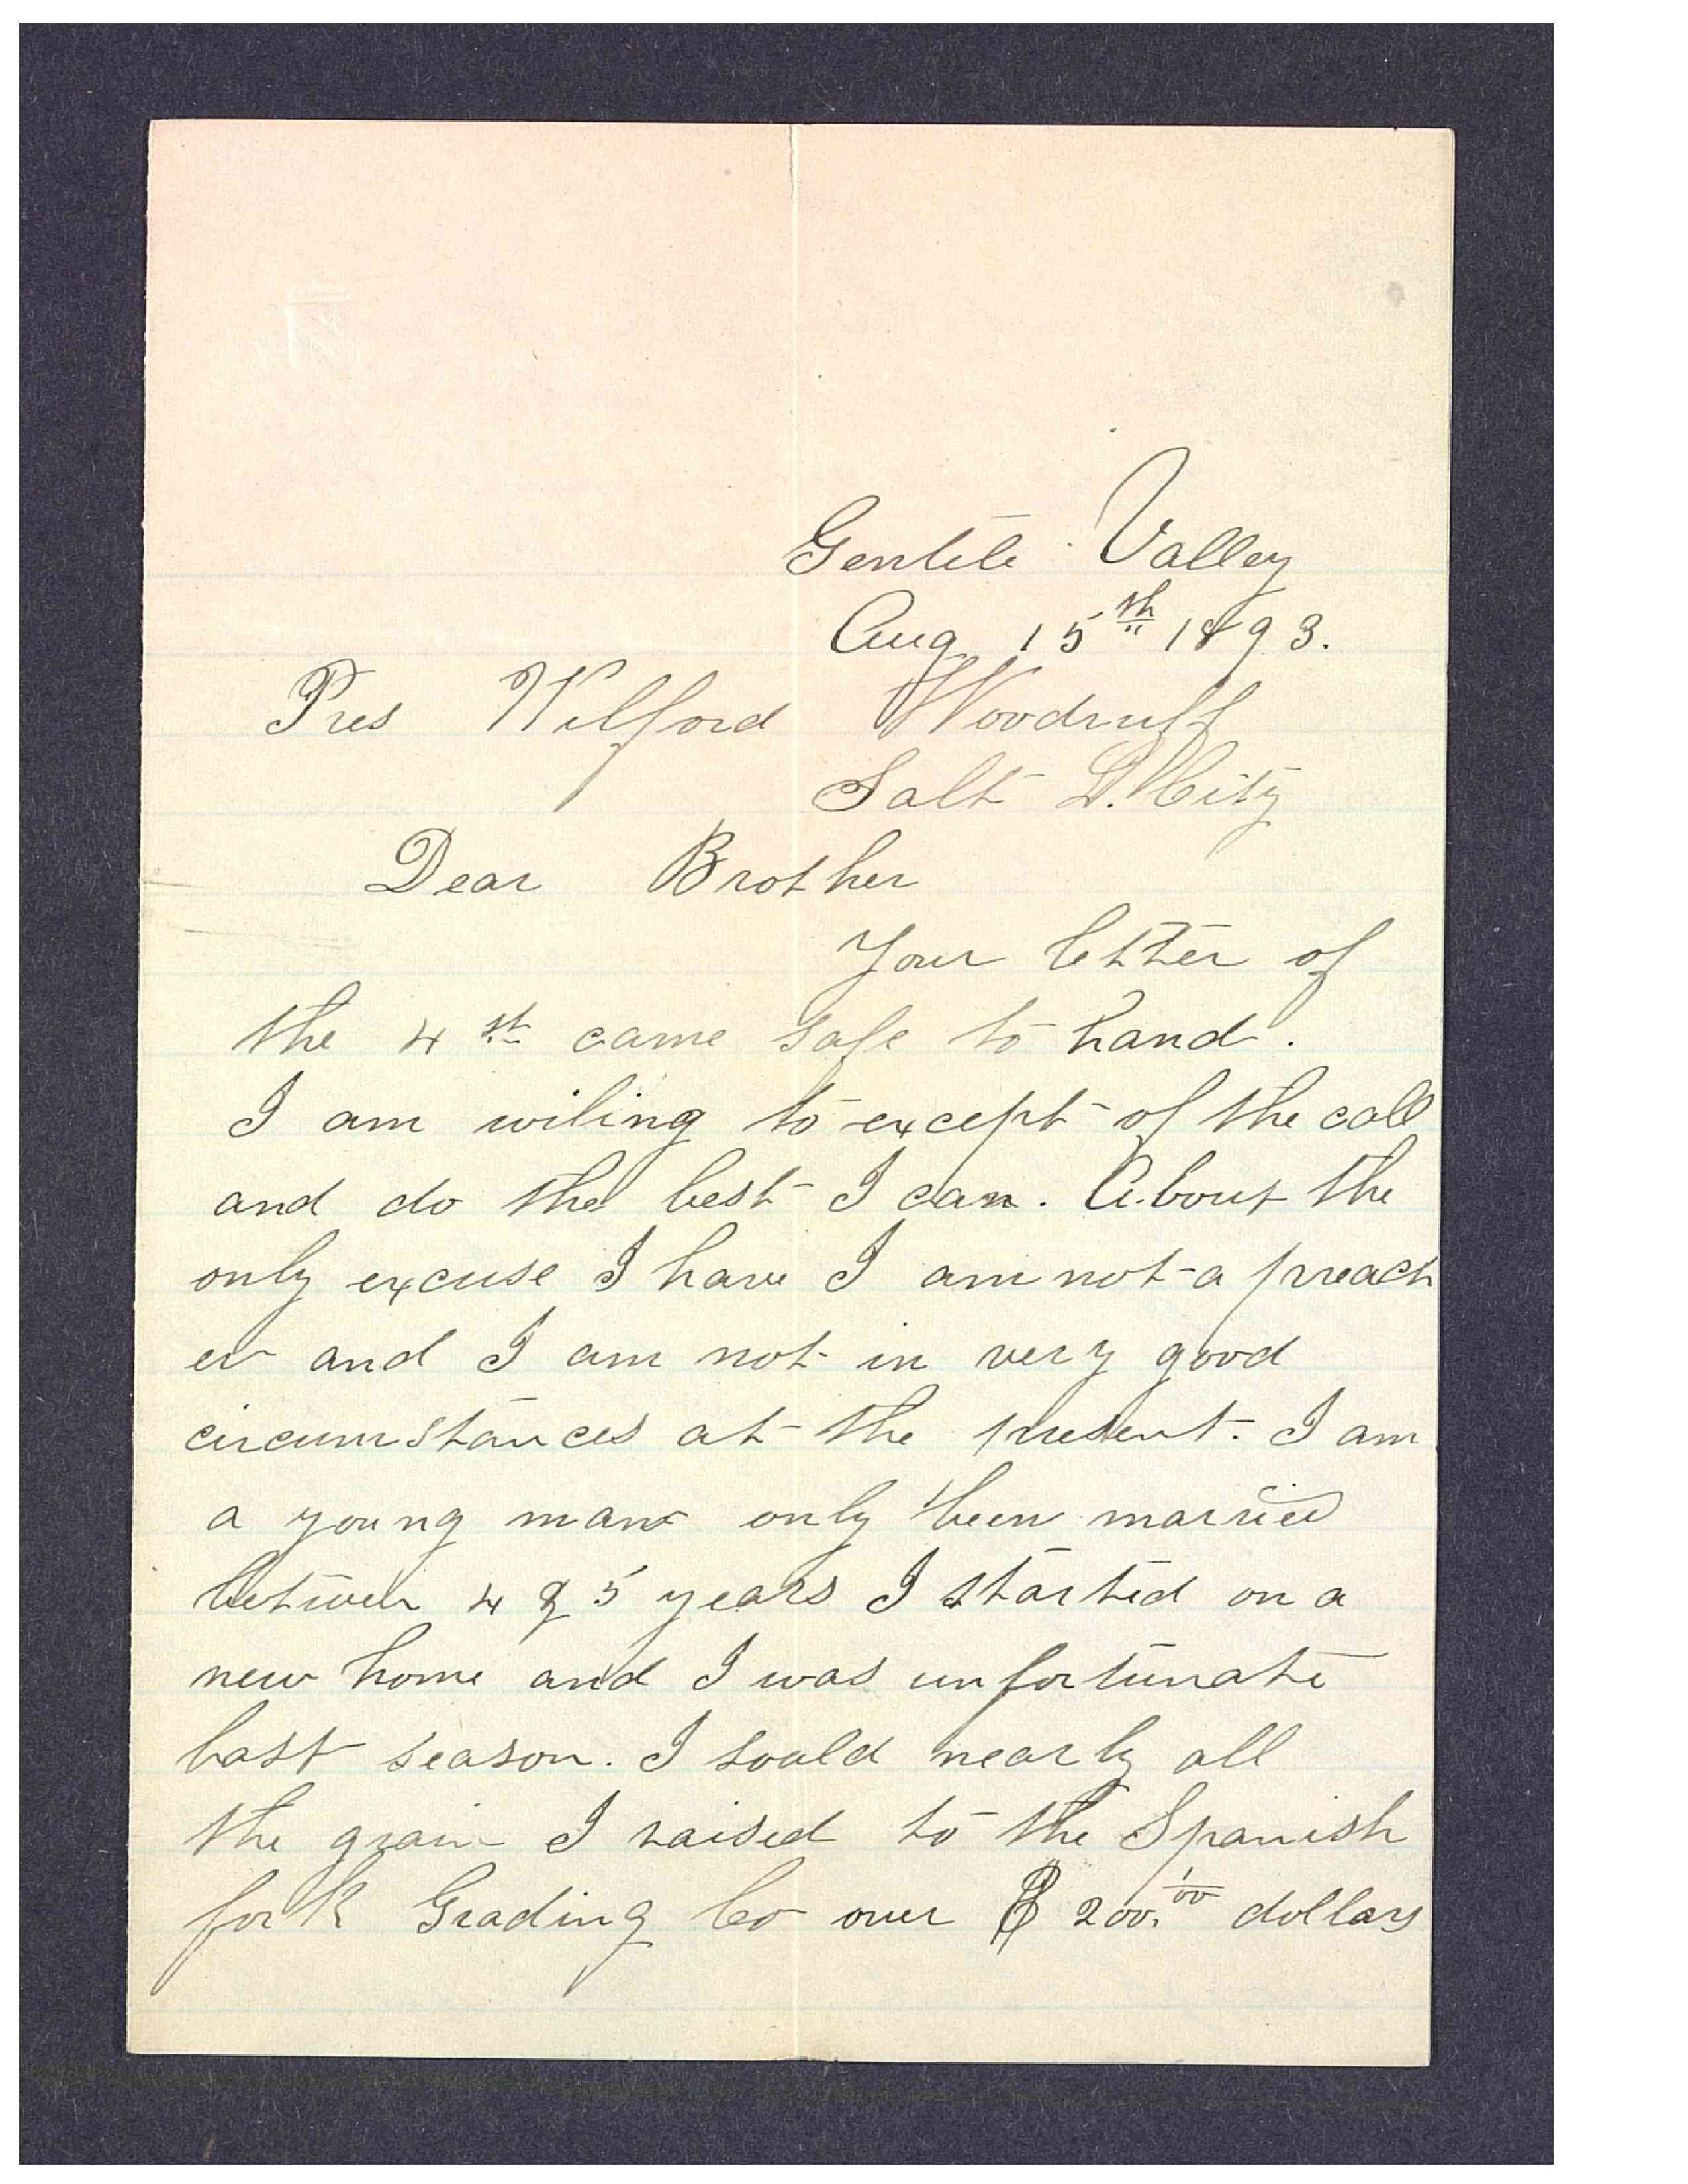 Gentile Valley
Aug 15th 1893.
Pres Wilford Woodruff
Salt L. City
Dear Brother
Your letter of
the 4st came safe to hand.
I am wiling to except of the call
and do the best I can. About the
only excuse I have I am not a preach
er and I am not in very good
circumstances at the present. I am
a young man only been married
between 4 & 5 years I started on a
new home and I was unfortunate
last season. I soald nearly all
the grain I raised to the Spanish
fork Grading Co over $200.00 dollars